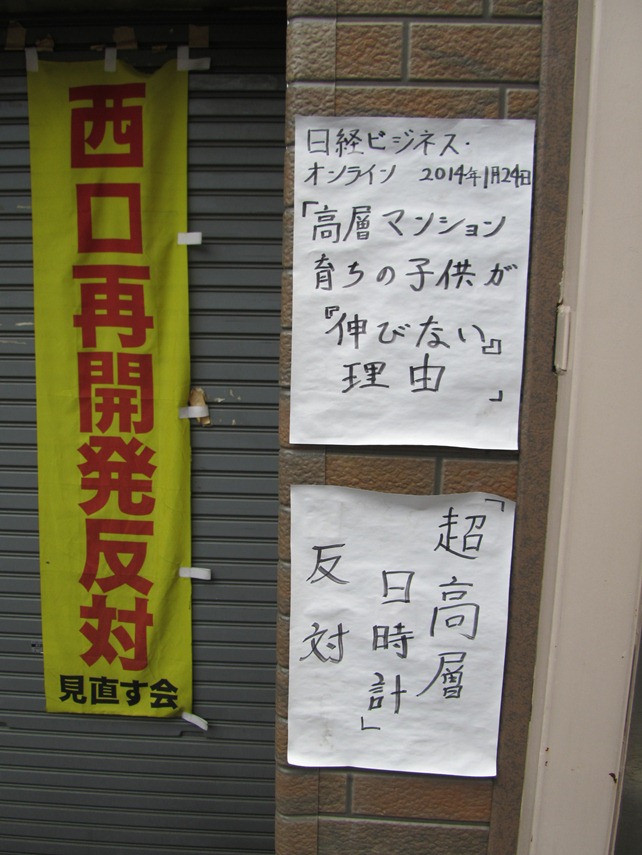 西口再開発反対
見直す会
日経ビジネス・
オンライン 2014年1月24日
「高層マンション
育ちの子供が
『伸びない』
理由」
「超高層
日時計」
反対